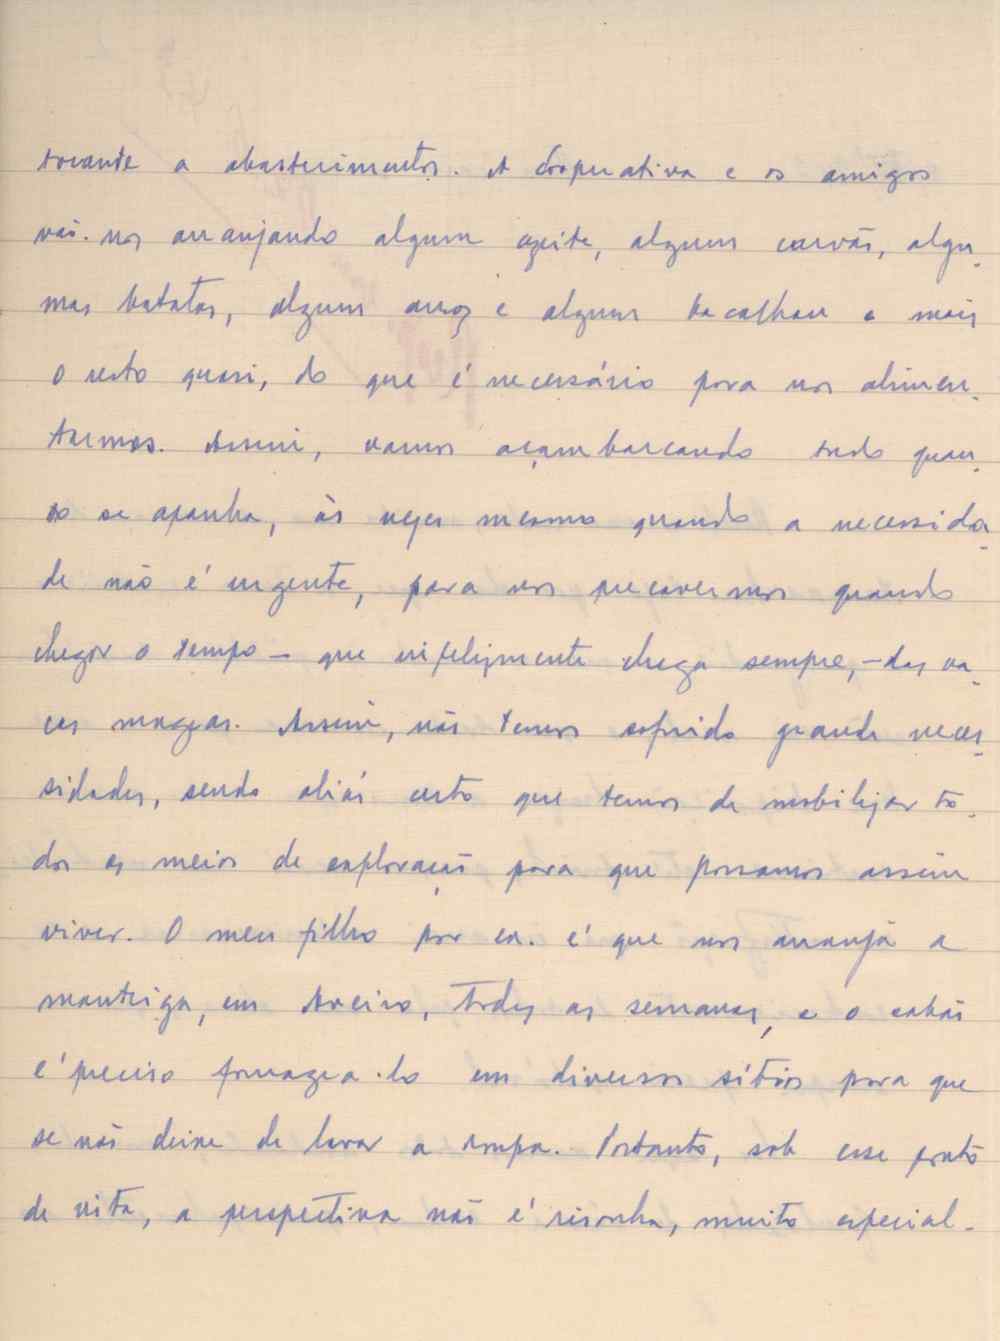 tocante a abastecimentos. A Cooperativa e os amigos
vão-nos arranjando algum azeite, algum carvão, algu-
mas batatas, algum arroz e algum bacalhau e mais
o resto quasi, do que é necessário para nos alimen-
tarmos. Assim, vamos açambarcando tudo quan-
to se apanha, às vezes mesmo quando a necessida-
de não é urgente, para nos precavermos quando
chegar o tempo - que infelizmente chega sempre, - das va-
cas magras. Assim, não temos sofrido grande neces-
sidades, sendo aliás certo que temos de mobilizar to-
dos os meios de exploração para que possamos assim
viver. O meu filho por ex. é que nos arranja a
manteiga, em Aveiro, todas as semanas, e o sabão
é preciso forragea-lo em diversos sitios para que
se não deixe de lavar a roupa. Portanto, sob esse ponto
de vista, a perspectiva não é risonha, muito especial-